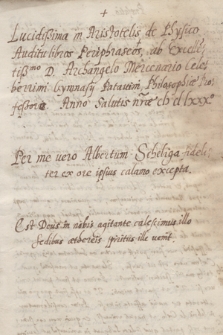 +
Lucidissima in Aristotelis de Physico
Auditu libros Periphraseos, ab Excell:
tiss:mo D. Archangelo Mercenario Cele
berrimi Gymnasij Patauini Philosophiae Pro
fessore Anno Salutis nrae
Per me uero Albertum Scheliga fideli
ter ex ore ipsius calamo excepta.
Est Deus in nobis agitante calescimus illo
Sedibus aethereis spiritus ille uenit